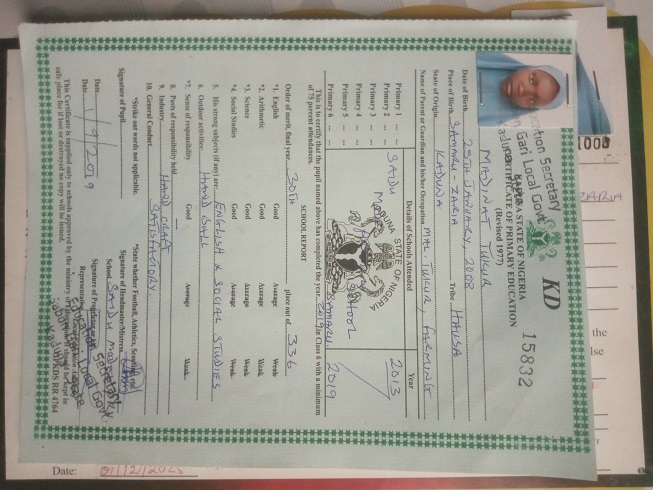 KD
15832
KADUNA STATE OF NIGERIA
CERTIFICATE OF PRIMARY EDUCATION
(Revised 1977)
Education Secretary
Gari Local Govt
MADINAT TUKUR
Date of Birth 25TH JANUARY, 2008
Place of Birth SAMARU-ZARIA Tribe HAUSA
State of Origin KADUNA
Name of Parent or Guardian and his/her Occupation MAL. TUKUR, FARMING
Details of Schools Attended Year
Primary 1 SAIDU 2013
Primary 2
Primary 3
Primary 4 SCHOOL
Primary 5
Primary 6 SAMARU 2019
KADUNA STATE OF NIGERIA
This is to certify that the pupil named above has completed the year 2019 in Class 6 with a minimum
of 75 percent attendances.
SCHOOL REPORT
Order of merit, final year 30TH place out of 336
*1. English Good Average Weak
*2. Arithmetic Good Average Weak
*3. Science Good Average Weak
*4. Social Studies Good Average Weak
5. His strong subjects (if any) are ENGLISH & SOCIAL STUDIES
6. Outdoor activities HAND BALL
*7. Sense of responsibility Good Average Weak
8. Posts of responsibility held —
9. Industry HAND CRAFT
10. General Conduct SATISFACTORY
*Strike out words not applicable. *State whether Football, Athletics,
Signature of Pupil Signature of Headmaster/Mistress
School SAIDU
Date Signature of
Date 1/9/2019 Representative
Education Secretary
Local Govt.
This Certificate is supplied only to schools approved by the ministry
safe place for if lost or destroyed no copy will be issued.
RR 4764
1000
ZARIA
the
else
Date: 01/12/2025